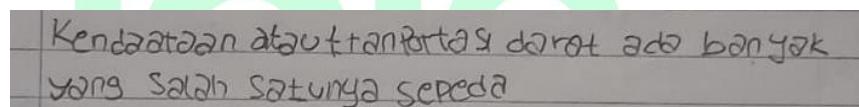 Kendaaraan atau tranportasi darat ada banyak
yang salah satunya sepeda